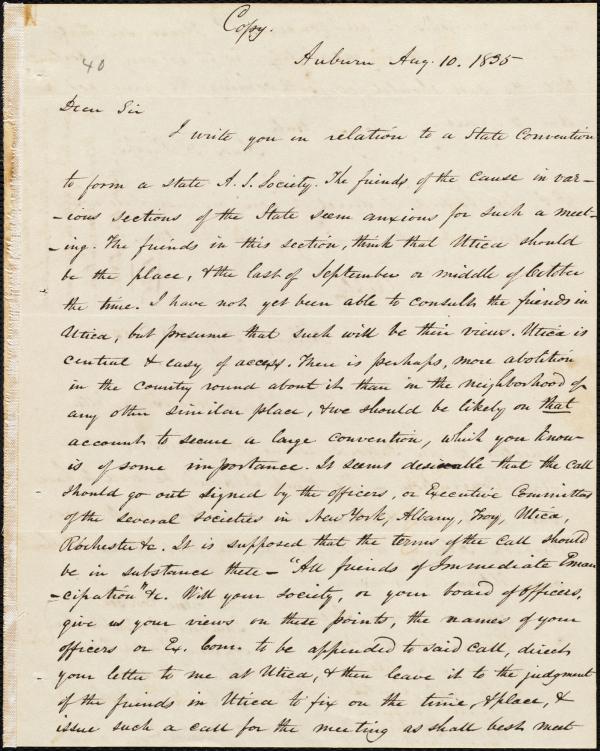 Copy.
40
Auburn Aug. 10. 1835
Dear Sir
I write you in relation to a State Convention
to form a State A. S. Society. The friends of the cause in var-
-ious sections of the State seem anxious for such a meet-
-ing. The friends in this section, think that Utica should
be the place, & the last of September or middle of October
the time. I have not yet been able to consult the friends in
Utica, but presume that such will be their views. Utica is
central & easy of access. There is perhaps, more abolition
in the country round about it than in the neighborhood of
any other similar place, & we should be likely on that
account to secure a large convention, which you know
is of some importance. It seems desireable that the call
should go out signed by the officers, or Executive Committees
of the several Societies in New York, Albany, Troy, Utica,
Rochester &c. It is supposed that the terms of the call should
be in substance these – "All friends of Immediate Eman
-cipation" &c. Will your Society, or your board of officers,
give us your views on these points, the names of your
officers or Ex. Com. to be appended to said call, direct
your letter to me at Utica, & then leave it to the judgment
of the friends in Utica to fix on the time, & place, &
issue such a call for the meeting as shall best meet